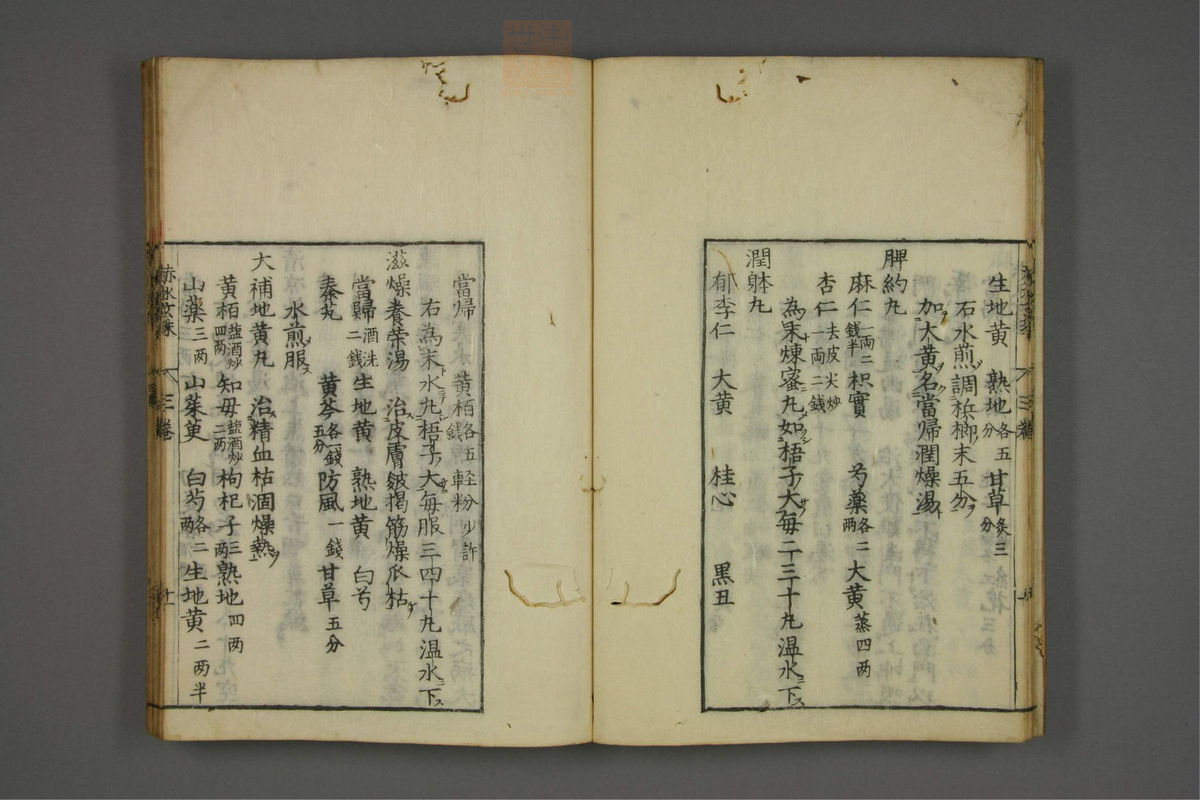 生地黄 熟地各五分 甘草炙三分
右水煎調梹榔末五分ヲ
加ヲ大黄名當帰潤燥湯ト
脾約丸
麻仁一兩二錢半 枳實 芍藥各二兩 大黄蒸四兩
杏仁去皮尖炒一兩二錢
為末煉蜜丸如梧子大毎二三十丸温水下ス
潤躰丸
郁李仁 大黄 桂心 黒丑
當帰 黄栢各五錢 軽粉少許
右為末水丸梧子大毎服三四十丸温水下ス
滋燥養榮湯 治皮膚皴掲筋燥爪枯
當歸酒洗二錢 生地黄 熟地黄 白芍
秦艽 黄芩各一錢五分 防風一錢 甘草五分
水煎服ス
大補地黄丸 治精血枯涸燥熱ヲ
黄栢盐酒炒四兩 知母盐酒炒二兩 枸杞子三兩 熟地四兩
山藥三兩 山茱萸 白芍各二兩 生地黄二兩半
赤水玄珠 三卷 十一